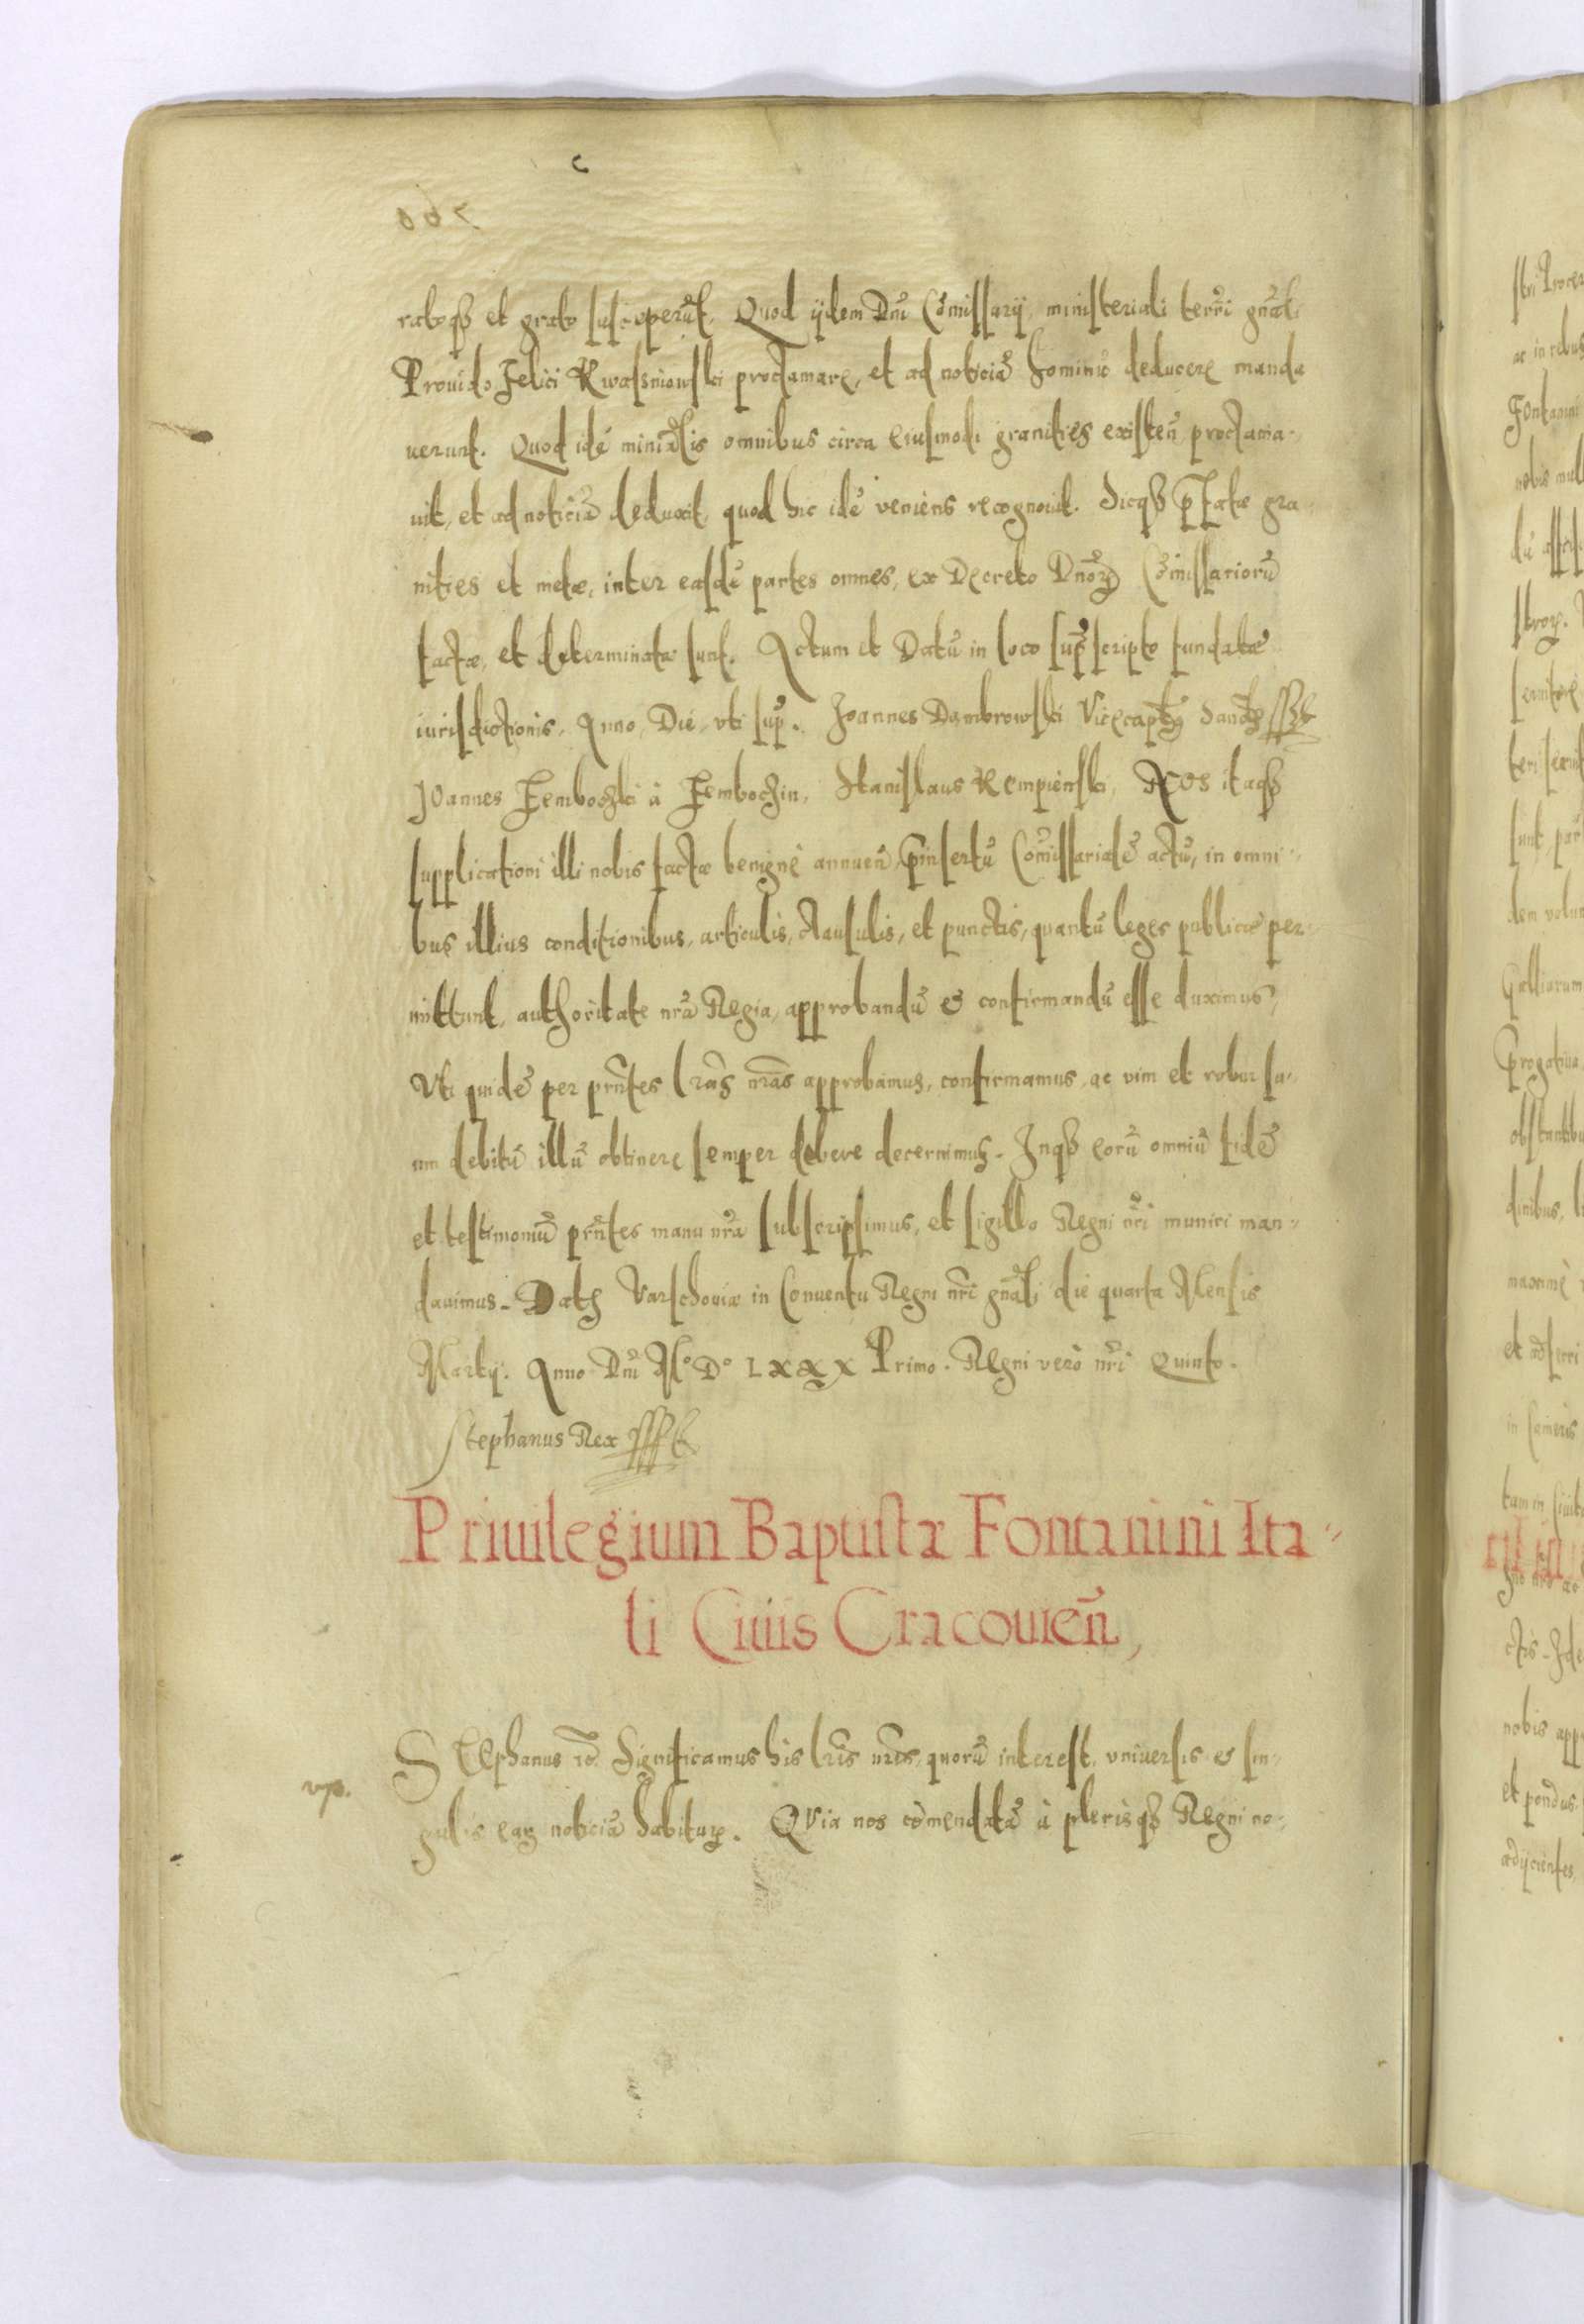 ratoqꝫ et grato susceperũt, Quod ijdem Dñi Cõmissarij, ministeriali terrῖ gñali
Prouido Felici Kwasniowski proclamare, et ad noticiã hominũ deducere manda
uerunt. Quod idẽ miniãlis omnibus circa eiusmodi granities existeñ proclama-
uit, et ad noticiã deduxit, quod hic idẽ veniens recognouit. Sicqꝫ p̃fatæ gra-
nities et metæ, inter easdẽ partes omnes, ex Decreto Dñoꝝ Cõmissariorũ
factæ, et determinatæ sunt. Actum et Datũ in loco sup̃scripto fundatæ
iurisdictionis, Anno, Die, vti sup̃. Joannes Dambrowski Vicecapt͂s Sandẽ
Joannes Hembochki à Hembochin, Stanislaus Kempienski, Nos itaqꝫ
supplicationi illi nobis factæ benignè annueñ, p̃insertũ Cõmissarialẽ actũ, in omni-
bus illius conditionibus, articulis, clausulis, et punctis, quantũ leges publicæ per-
mittunt, authoritate nr̃a Regia, approbandũ & confirmandũ esse duximus,
Vti quidẽ per pñtes lr̃as nr̃as approbamus, confirmamus, ac vim et robur su-
um debitũ illũ obtinere semper debere decernimus. Inqꝫ eorũ omniũ fidẽ
et testimoniũ pr̃ñtes manu nr̃a subscripsimus, et sigillo Regni nr̃i muniri man-
dauimus. Datꝫ Varschouiæ in Conuentu Regni nr̃i gñali die quarta Mensis
Martij. Anno Dñi M° D° LXXX Primo. Regni verò nr̃i Quinto.
Stephanus Rex
Priuilegium Baptistæ Fontanini Ita-
li Ciuis Cracouieñ,
Stephanus &c. Significamus his lr̃is nr̃is, quorũ interest, vniuersis & sin-
gulis eaꝝ noticiã habituꝝ. Quia nos cõmendatã à plerisqꝫ Regni no-